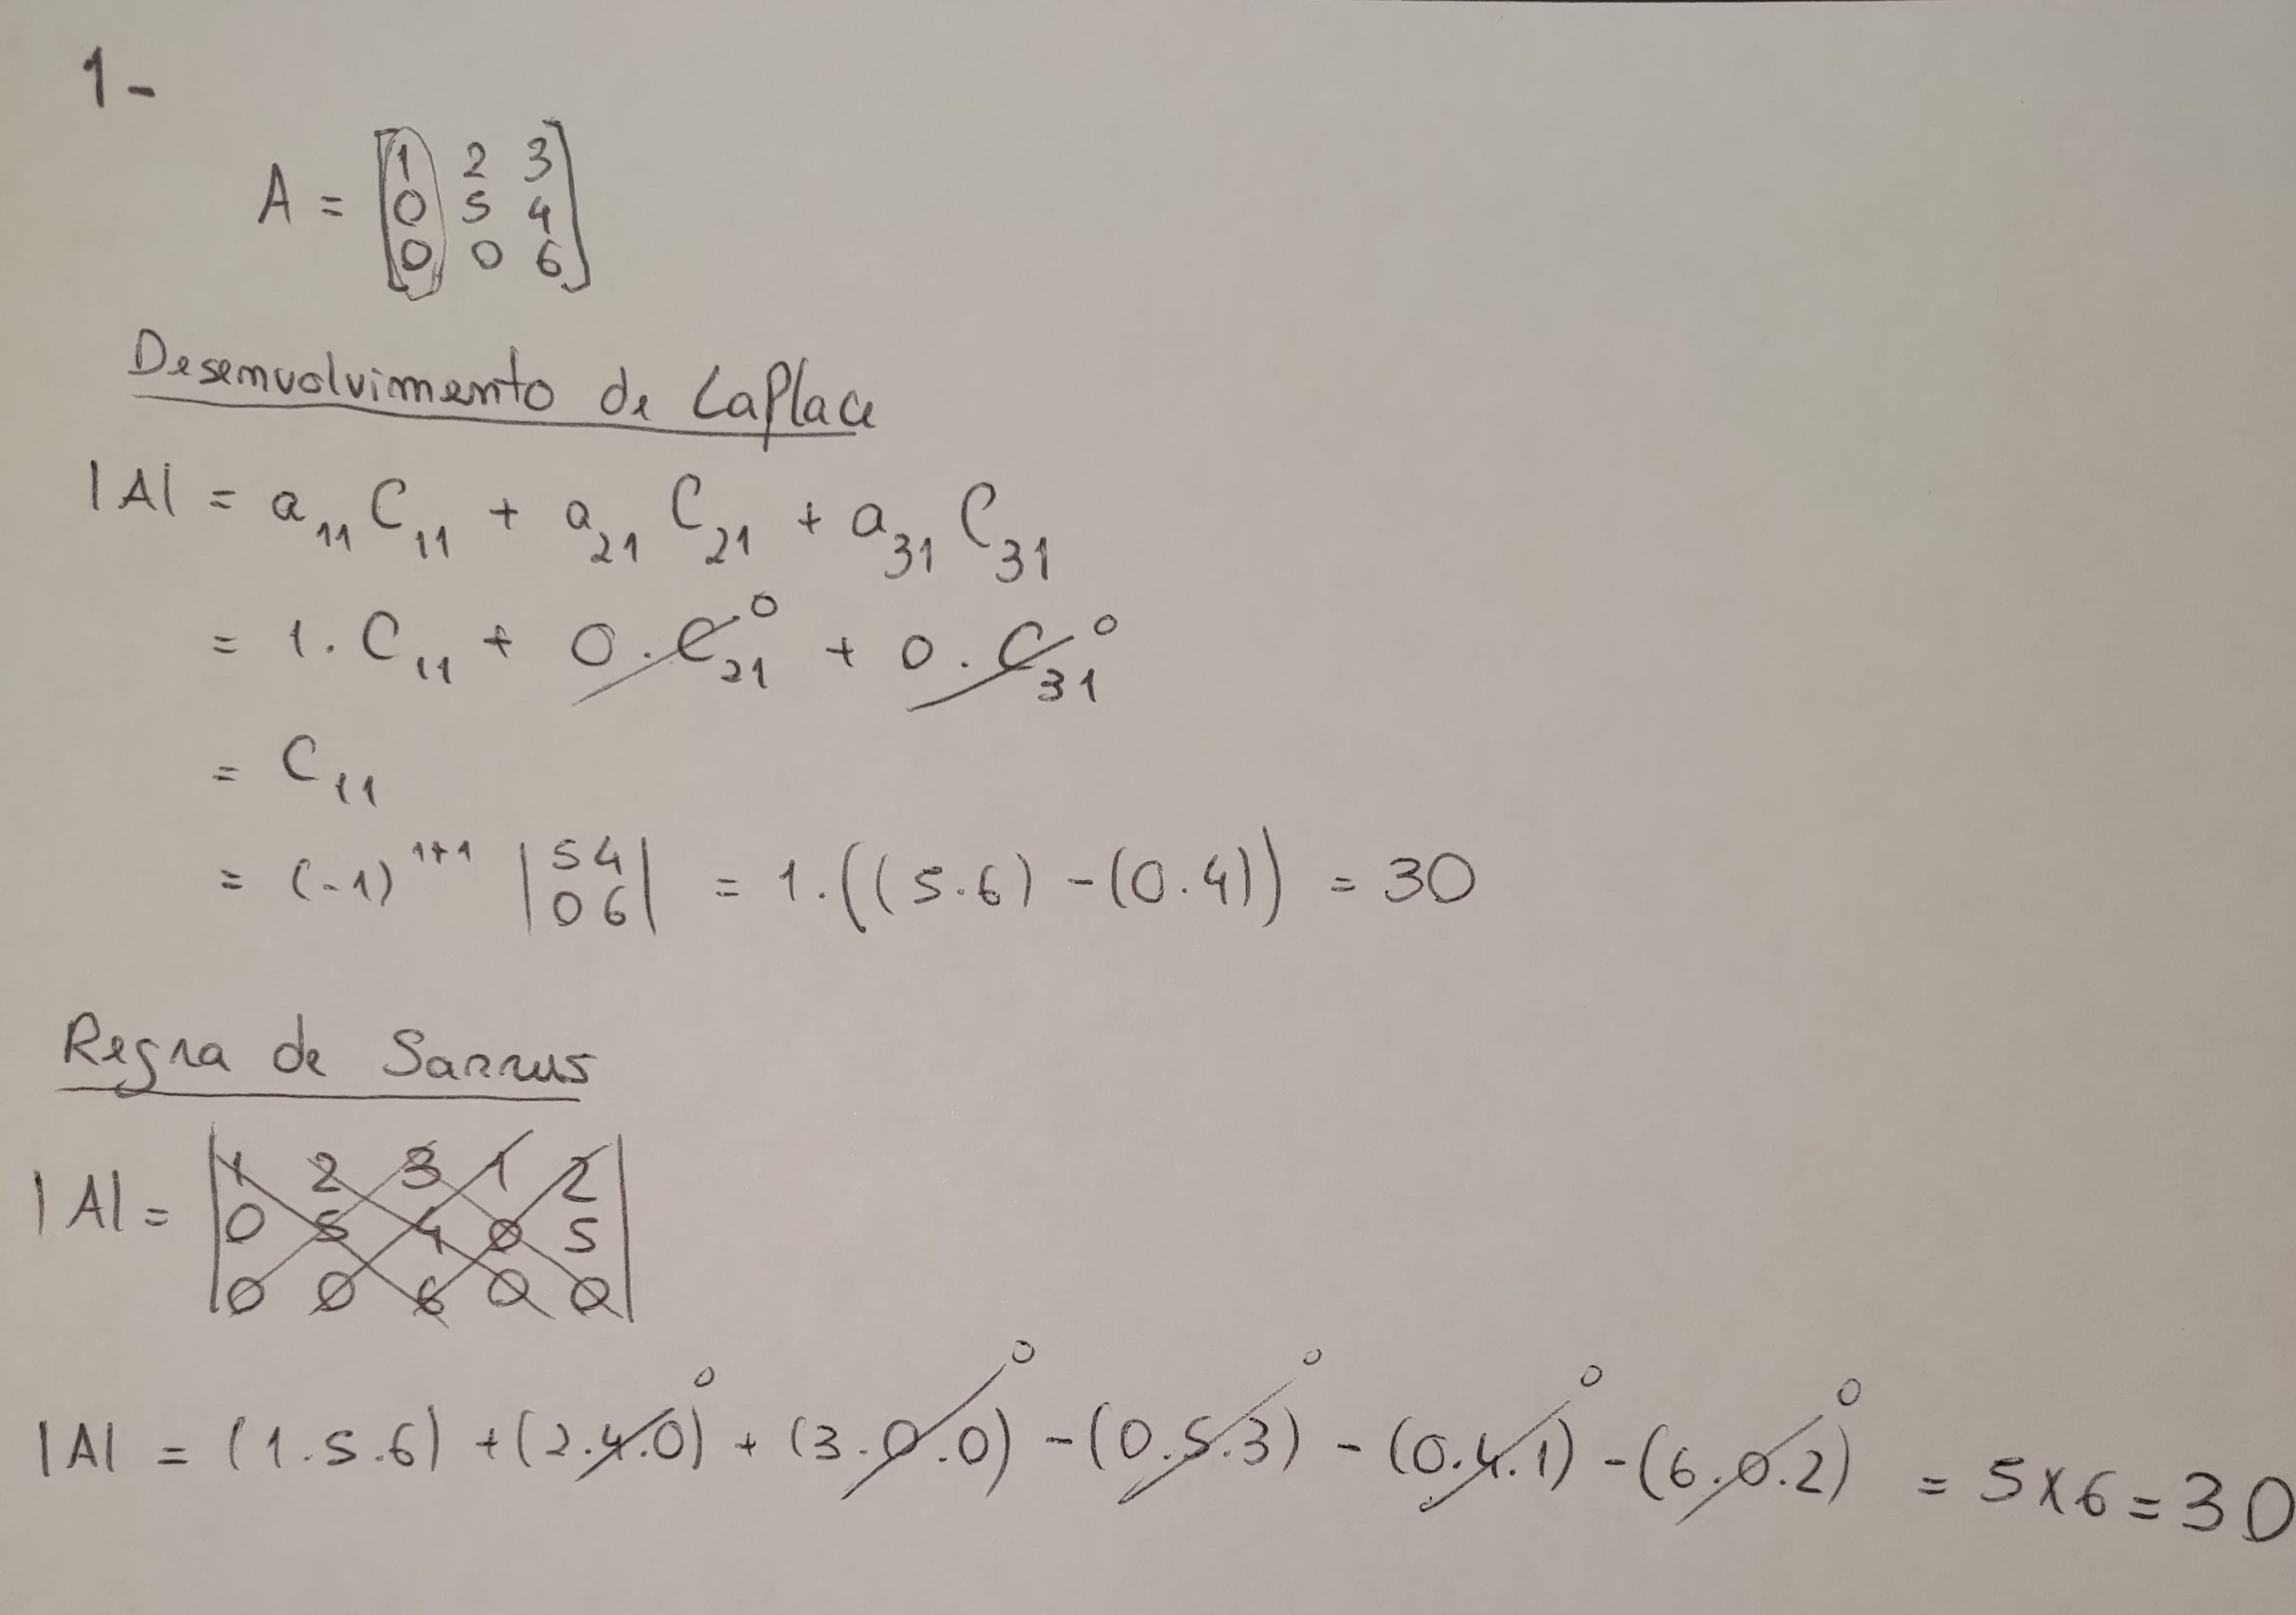 1-
A = [1 2 3
0 5 4
0 0 6]
Desenvolvimento de LaPlace
|A| = a₁₁ C₁₁ + a₂₁ C₂₁ + a₃₁ C₃₁
= 1 . C₁₁ + 0 . C₂₁ ⁰ + 0 . C₃₁ ⁰
= C₁₁
= (-1)¹⁺¹ |5 4
0 6| = 1.((5.6) - (0.4)) = 30
Regra de Sarrus
|A| = |1 2 3 1 2
0 5 4 0 5
0 0 6 0 0|
|A| = (1.5.6) + (2.4.0)⁰ + (3.0.0)⁰ - (0.5.3)⁰ - (0.4.1)⁰ - (6.0.2)⁰ = 5x6 = 30